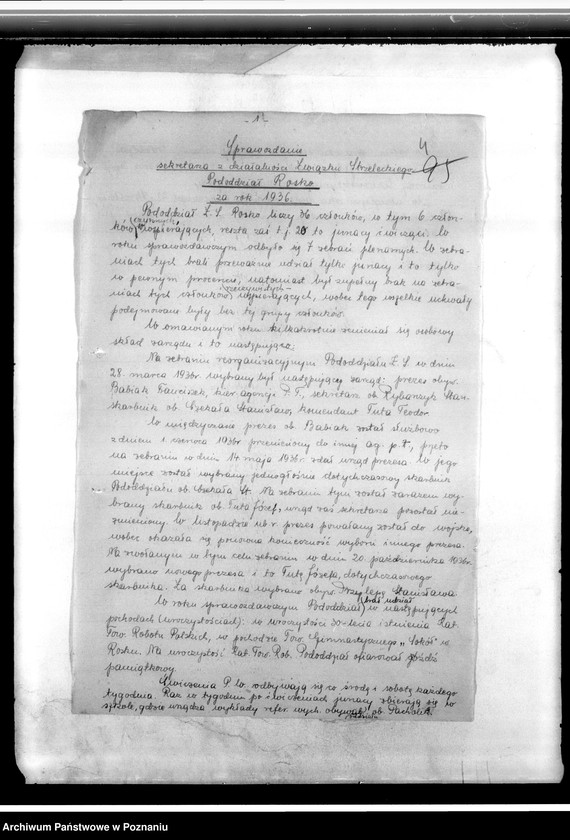 - 1 -
4
95
Sprawozdanie
sekretarza z działalności Związku Strzeleckiego
Pododdział Rosko
za rok 1936.
Pododdział Z.S. Rosko liczy 36 członków, w tym 6 człon-
ków wspierających, reszta zaś t.j. 20 to junacy i ćwiczący. W
czynnych,
roku sprawozdawczym odbyło się 7 zebrań plenarnych. W zebra-
niach tych brali przeważnie udział tylko junacy i to tylko
w pewnym procencie, natomiast był zupełny brak na zebra-
niach tych członków wspierających, wobec tego wszelkie uchwały
podejmowane były bez tej grupy członków.
W omawianym roku kilkakrotnie zmieniał się osobowy
skład zarządu i to następująco:
Na zebraniu reorganizacyjnym Pododdziału Z.S. w dniu
28. marca 1936r. wybrany był następujący zarząd: prezes obyw.
Babiak Franciszek, kier. agencji P.T., sekretarz ob. Rybarczyk Stan.
skarbnik ob. Czekała Stanisław, komendant Tuta Teodor.
W międzyczasie prezes ob. Babiak został służbowo
z dniem 1 czerwca 1936r. przeniesiony do innej ag. p.t., przeto
na zebraniu w dniu 14 maja 1936r. zdał urząd prezesa. W jego
miejsce został wybrany jednogłośnie dotychczasowy skarbnik
Pododdziału ob. Czekała St. Na zebraniu tym został zarazem wy-
brany skarbnik ob. Tuta Józef, urząd zaś sekretarza pozostał nie-
zmieniony. W listopadzie ub.r. prezes powołany został do wojska,
wobec okazała się ponowna konieczność wyboru innego prezesa.
Na zwołanym w tym celu zebraniu w dniu 20. października 1936r.
wybrano nowego prezesa i to Tutę Józefa, dotychczasowego
skarbnika. Za skarbnika wybrano obyw. Stanisława.
W roku sprawozdawczym Pododdział brał udział w następujących
pochodach (uroczystościach): w uroczystości 30-lecia istnienia Kat.
Tow. Robotn. Polskich, w pochodzie Tow. Gimnastycznego „Sokół" w
Rosku. Na uroczystość Kat. Tow. Rob. Pododdział ofiarował gwóźdź
pamiątkowy.
Ćwiczenia P.W. odbywają się co środę i sobotę każdego
tygodnia. Raz w tygodniu po ćwiczeniach junacy zbierają się w
szkole, gdzie urządza wykłady refer. wych. obywat. ob.